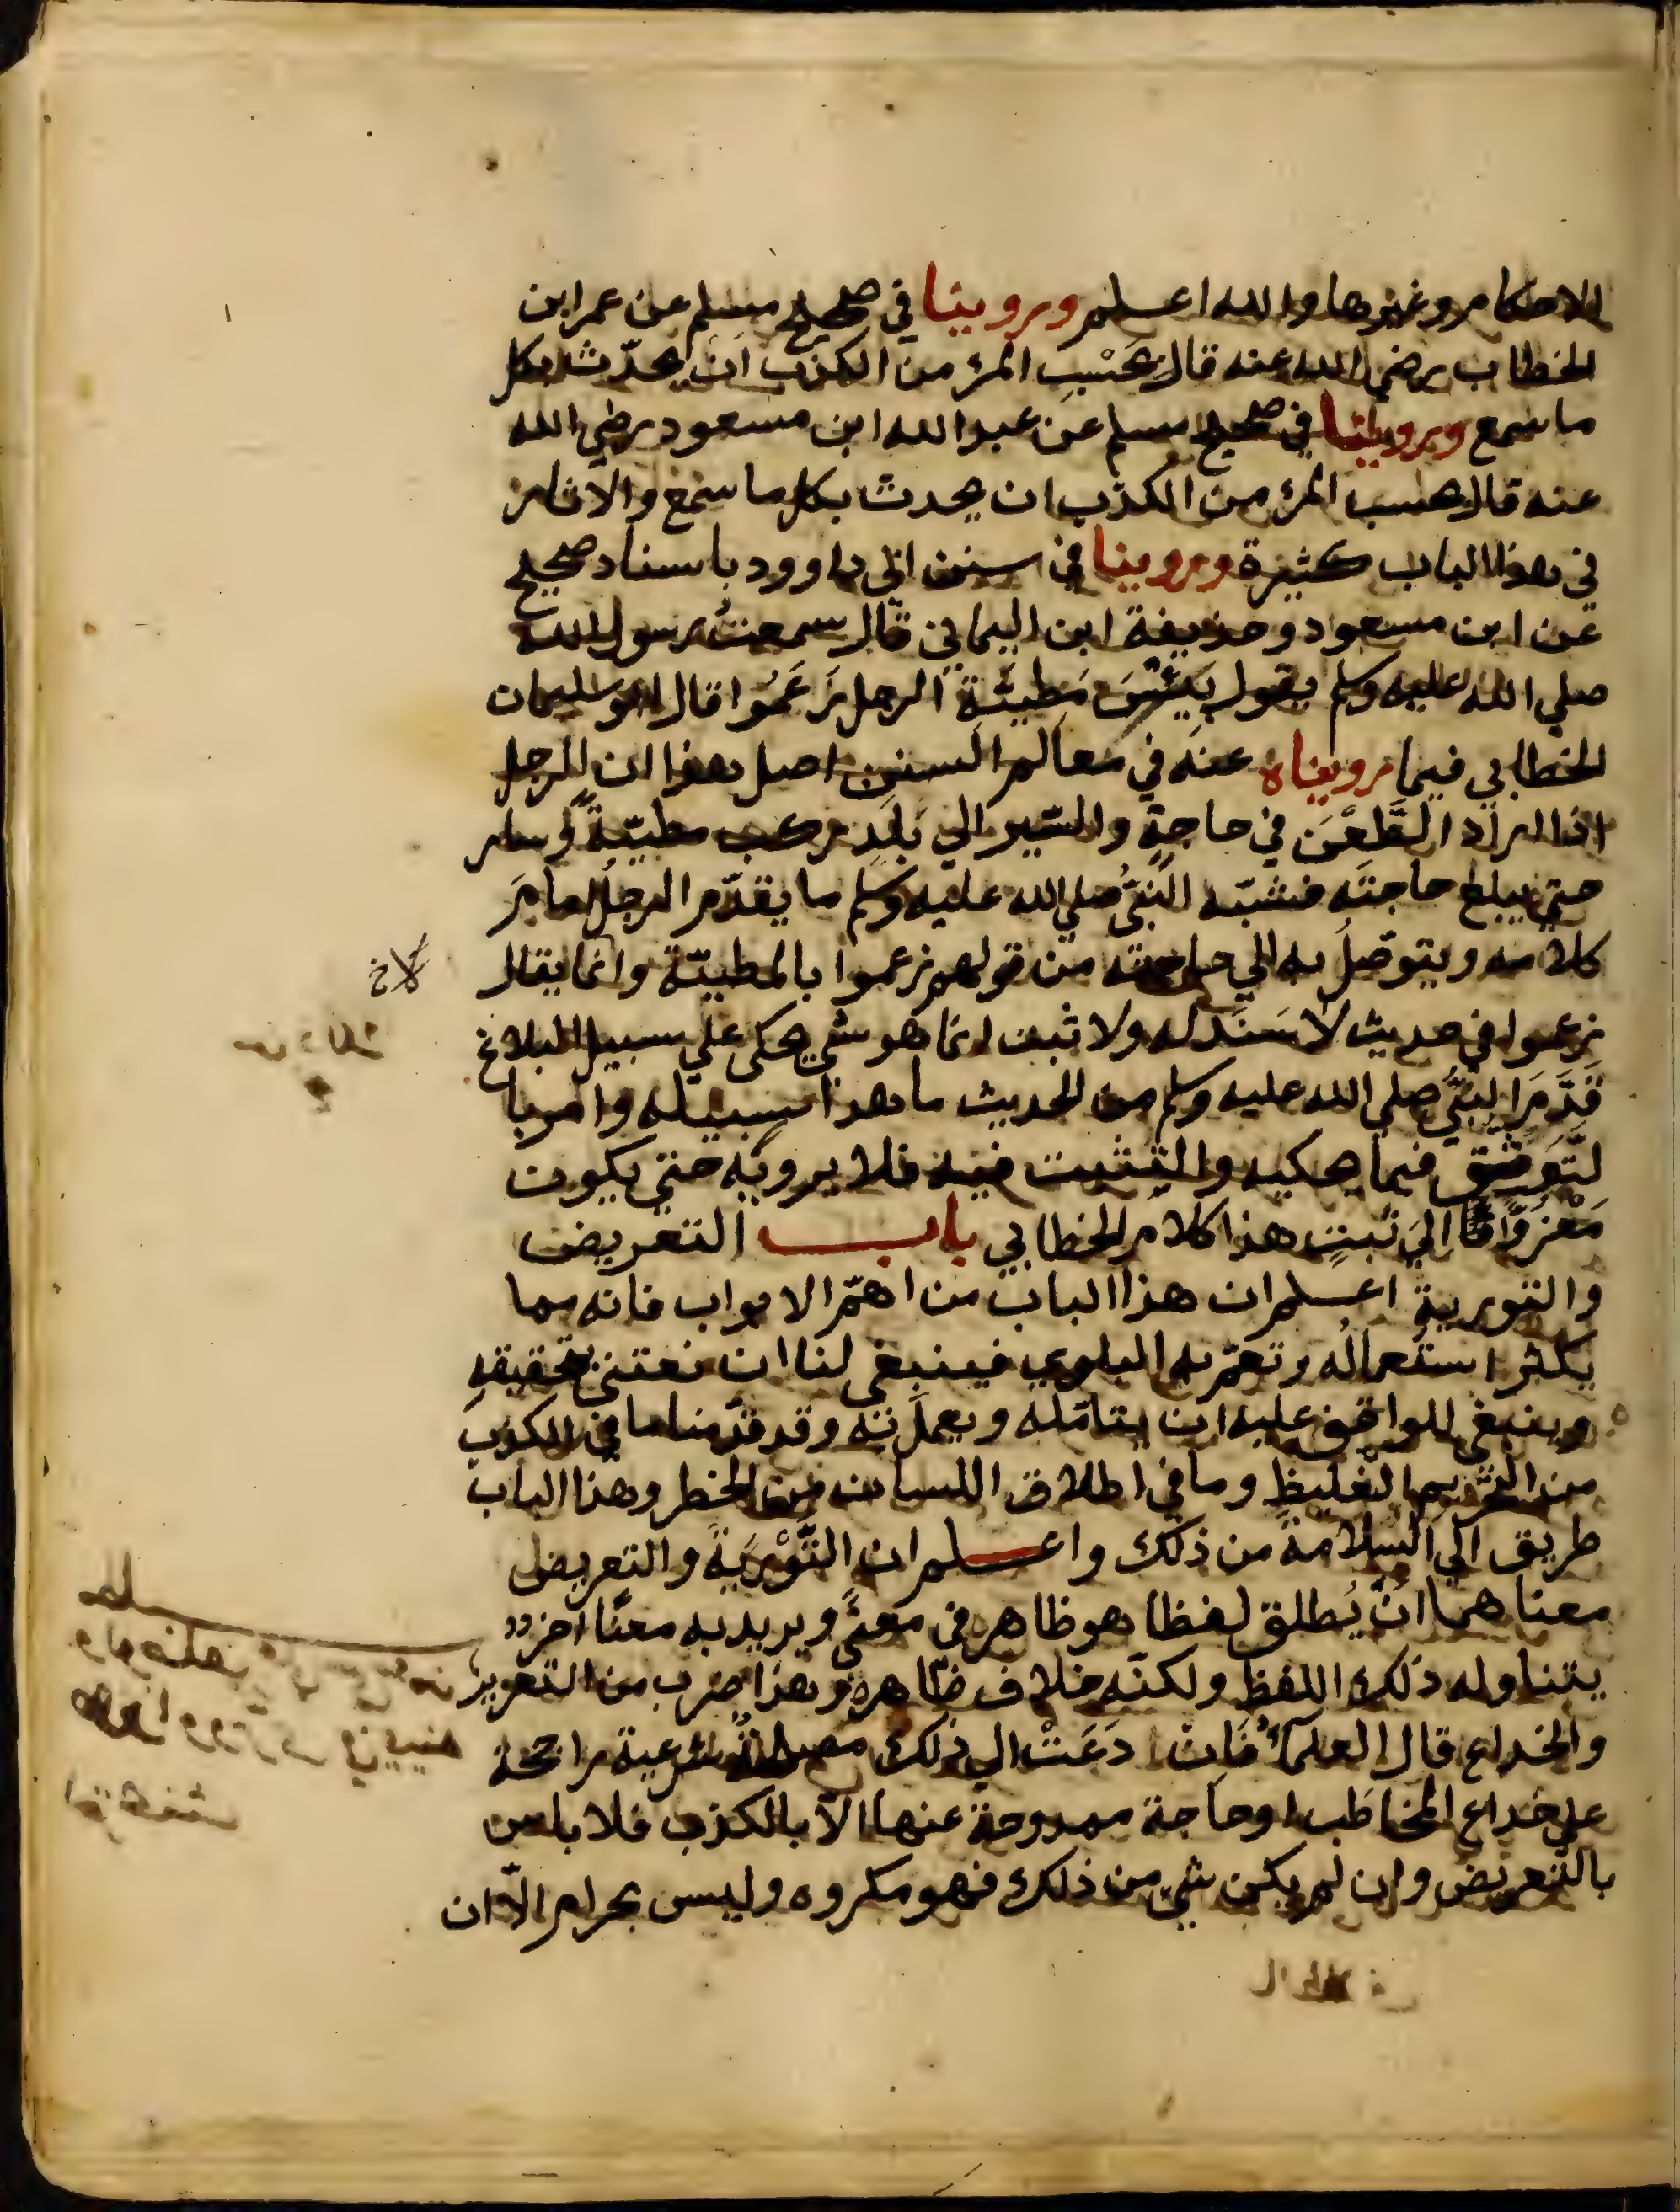 الاحكام وغيرها والله اعلم وروينا في صحيح مسلم عن عمر ابن
الخطاب رضي الله عنه قال بحَسْبِ المرئ من الكذب ان يحدّث بكل
ما سمع وروينا في صحيح مسلم عن عبد الله ابن مسعود رضي الله
عنه قال حسب المرئ من الكذب ان يحدث بكل ما سمع والاثار
في هذا الباب كثيرة وروينا في سنن ابي داوود باسناد صحيح
عن ابن مسعود وحذيفة ابن اليماني قال سمعتُ رسول الله
صلي الله عليه وسلم يقول بِئْسَ مَطِيّةِ الرجل زَعَمُوا قال ابو سليمان
الخطابي فيما رويناه عنه في معالم السنن اصل هذا ان الرجل
اذا اراد الظَّعْنَ في حاجةٍ والسّير الي بَلَدٍ ركب مطيّةً وسار
حتي يبلغ حاجتَه فشبّه النبيُّ صلي الله عليه وسلم ما يقدّم الرجلُ امامَ
كلامه ويتوصّلُ به الي حاجته من قولهم زعموا بالمطيّة وانما يقال
زعموا في حديث لا سَنَدَ له ولا ثبت انما هو شي يحكى علي سبيل البلاغ
فَذَمَّ النبيُّ صلي الله عليه وسلم من الحديث ما هذا سبيله وامر با
لتّوثّق فيما يحكيه والتثبت فيه فلا يرويه حتي يكون
مَعْزُوًّا الي ثبتٍ هذا كلام الخطابي باب التعريض
والتورية اعلم ان هذا الباب من اهمّ الابواب فانه مما
يكثر استعمالُه وتعمّ به البلوي فينبغي لنا ان نعتني بتحقيقهِ
وينبغي للواقف عليه ان يتامّله ويعملَ به وقد قدّمنا ما في الكذب
من التحريم الغليظِ وما في اطلاق اللسان من الخطر وهذا الباب
طريق الي السلامة من ذلك واعلم ان التَّوْرِيَةَ والتعريض
معناهما انْ يُطلق لفظا هو ظاهر في معنًي ويريد به معنًا اخر
يتناوله ذلك اللفظ ولكنّه خلاف ظاهره وهذا ضرب من التغرير
والخداع قال العلمآءُ فَانْ دَعَتْ الي ذلك مصلحةٌ شرعية راجحة
علي خداع المخاطَب او حاجة ممدوحة عنها الاّ بالكذب فلا باس
بالتعريض وان لم يكن شيٌ من ذلك فهو مكروه وليس بحرام الاّ ان